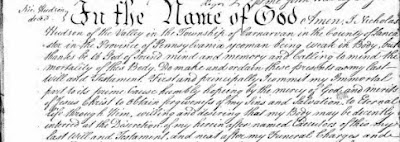 Nic. Hudson
decd.
In the Name of God Amen, I Nicholas
Hudson of the Valley in the Township of Carnarvon in the County of Lanca
ster in the Province of Pennsylvania yeoman being weak in Body, but
thanks be to God of Sound mind and memory and Calling to mind the
mortality of this Body, Do make and ordain these presents to contain
will and Testament First and principally I commit my Immortal
part to its prime Cause humbly hoping by the mercy of God and merits
of Jesus Christ to Obtain forgiveness of my Sins and Salvation, to Eternal
life through Him, willing and desiring that my Body may be decently
interred at the Discretion of my herein after named Executors of this my
last Will and Testament, and next after my Funeral Charges and